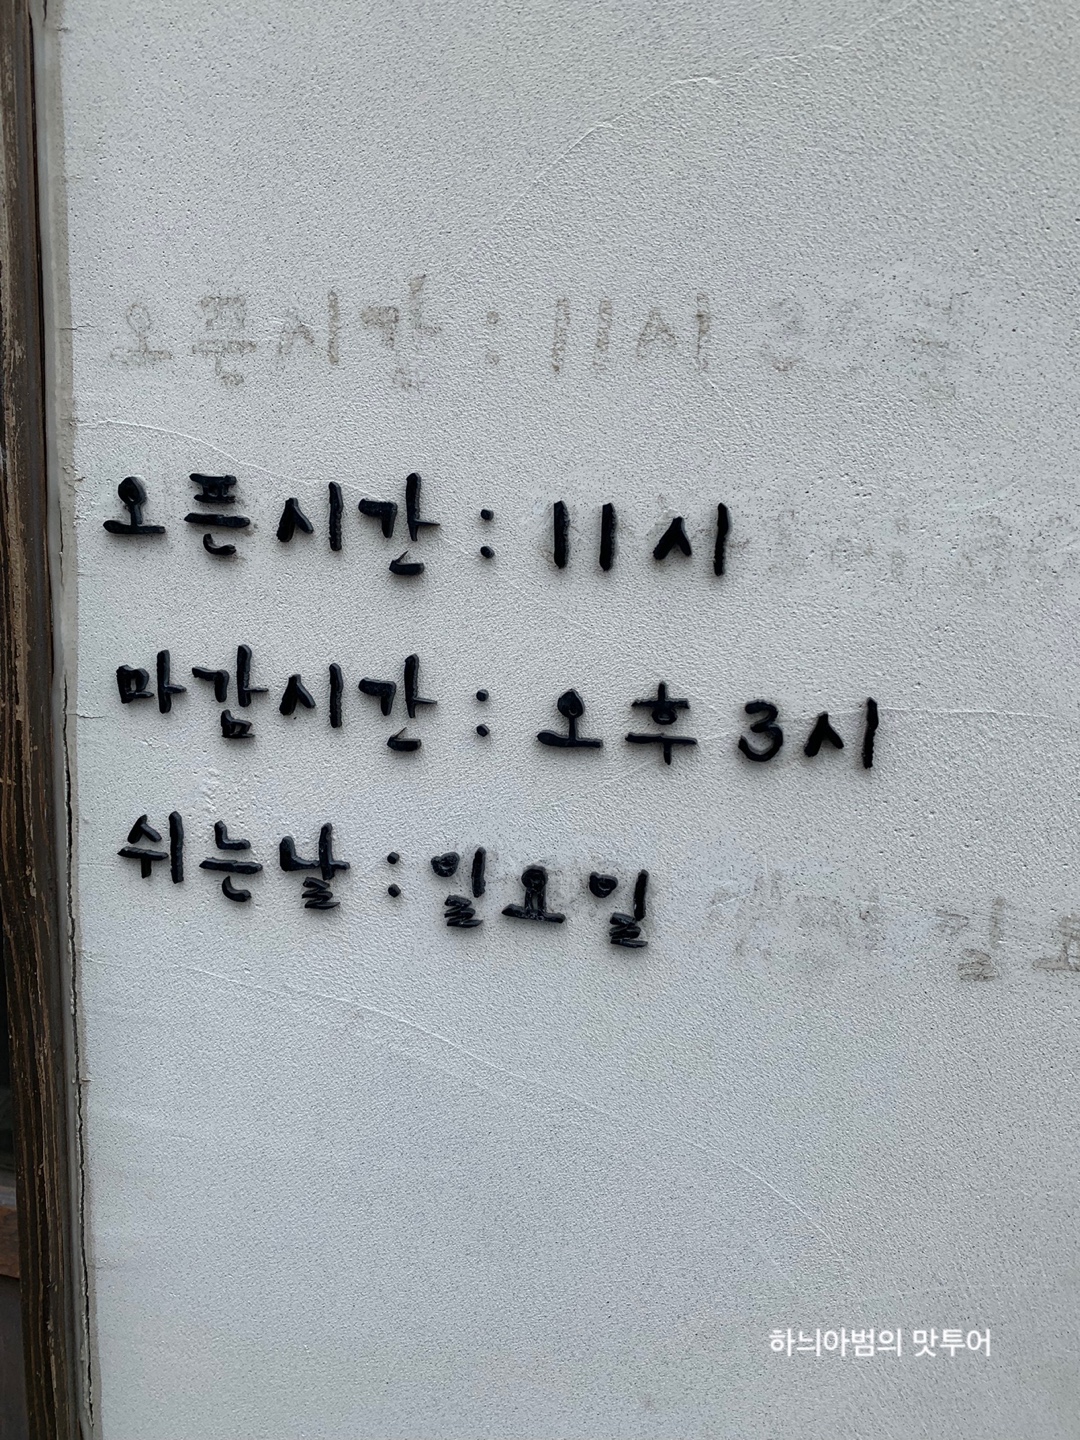 오픈시간 : 11시
오픈시간 : 11시
마감시간 : 오후 3시
쉬는날 : 일요일
하늬아범의 맛투어